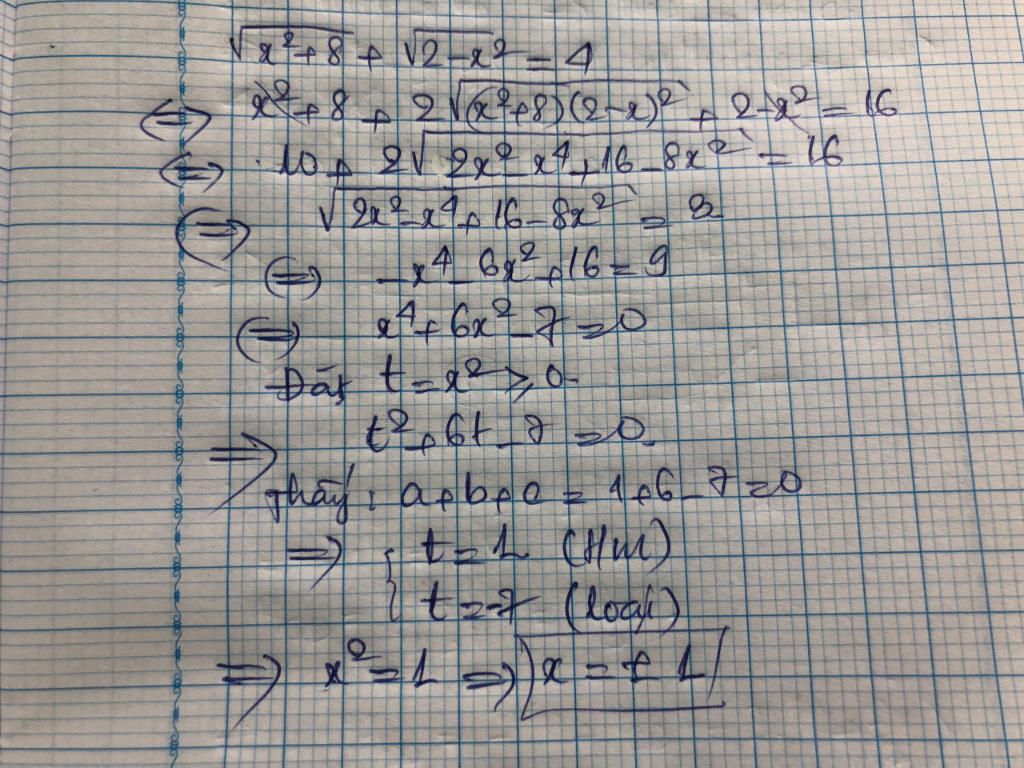 √(x²+8) + √(2-x²) = 4
⇔ x²+8 + 2√((x²+8)(2-x)²) + 2-x² = 16
⇔ 10 + 2√(2x²-x⁴+16-8x²) = 16
⇔ √(2x²-x⁴+16-8x²) = 3
⇔ -x⁴-6x²+16 = 9
⇔ x⁴+6x²-7 = 0
Đặt t = x² ≥ 0
⇒ t²+6t-7 = 0
Thấy: a+b+c = 1+6-7 = 0
⇒ { t = 1 (tm)
t = -7 (loại)
⇒ x² = 1 ⇒ x = ± 1